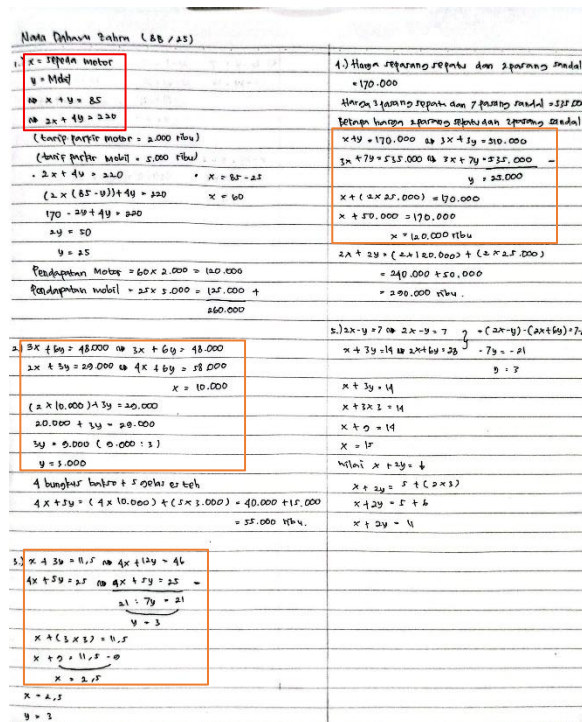 Nama Daharu Zahra (8B / 25)
1.) x = sepeda motor
y = Mobil
⇒ x + y = 85
⇒ 2x + 4y = 220
(tarif parkir motor = 2.000 ribu)
(tarif parkir mobil = 5.000 ribu)
• 2x + 4y = 220 • x = 85 - 25
(2 x (85 - y)) + 4y = 220 x = 60
170 - 2y + 4y = 220
2y = 50
y = 25
Pendapatan Motor = 60 x 2.000 = 120.000
Pendapatan mobil = 25 x 5.000 = 125.000 +
260.000
2.) 3x + 6y = 48.000 ⇒ 3x + 6y = 48.000
2x + 3y = 29.000 ⇒ 4x + 6y = 58.000
x = 10.000
(2 x 10.000) + 3y = 29.000
20.000 + 3y = 29.000
3y = 9.000 (9.000 : 3)
y = 3.000
4 bungkus bakso + 5 gelas es teh
4x + 5y = (4 x 10.000) + (5 x 3.000) = 40.000 + 15.000
= 55.000 ribu.
3.) x + 3y = 11,5 ⇒ 4x + 12y = 46
4x + 5y = 25 ⇒ 4x + 5y = 25 -
21 : 7y = 21
y = 3
x + (3 x 3) = 11,5
x + 9 = 11,5 - 9
x = 2,5
x = 2,5
y = 3
4.) Harga sepasang sepatu dan 2 pasang sandal
= 170.000
Harga 3 pasang sepatu dan 7 pasang sandal = 535.00
Berapa harga 2 pasang sepatu dan 2 pasang sandal
x + y = 170.000 ⇒ 3x + 3y = 510.000
3x + 7y = 535.000 ⇒ 3x + 7y = 535.000 -
y = 25.000
x + (2 x 25.000) = 170.000
x + 50.000 = 170.000
x = 120.000 ribu
2x + 2y = (2 x 120.000) + (2 x 25.000)
= 240.000 + 50.000
= 290.000 ribu.
5.) 2x - y = 7 ⇒ 2x - y = 7 } = (2x - y) - (2x + 6y) = 7 -
x + 3y = 14 ⇒ 2x + 6y = 28 - 7y = - 21
y = 3
x + 3y = 14
x + 3 x 3 = 14
x + 9 = 14
x = 15
Nilai x + 2y = 6
x + 2y = 5 + (2 x 3)
x + 2y = 5 + 6
x + 2y = 11